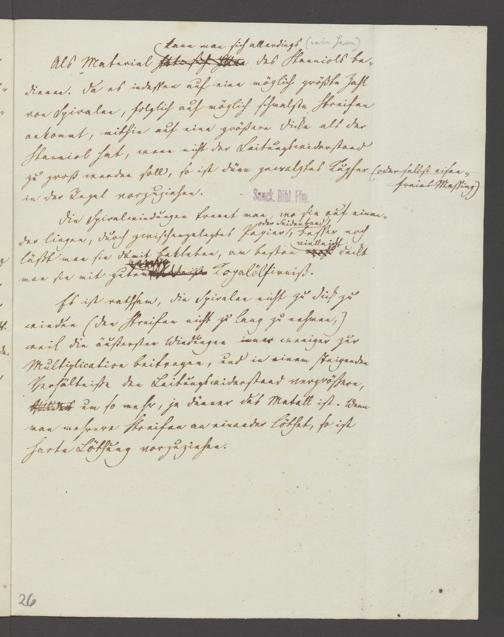 kann man sich allerdings (wie Herr)
Als Material des Stanniols be-
dienen. Da es indessen auf eine möglich größte Zahl
von Spiralen, folglich auf möglich schmalste Streifen
ankommt, mithin auf eine größere Dicke als der
Stanniol hat, wenn nicht der Leitungswiderstand
zu groß werden soll, so ist dünn gewalztes Kupfer (oder selbst eisen-
freies Messing)
in der Regel vorzuziehen.
Senck. Bibl. Ffm.
Die Spiralwindungen trennt man, wo sie auf einan-
der liegen, durch zwischengelegtes Papier, besser noch
oder Seidenband
läßt man sie damit bekleben, am besten vielleicht deckt
man sie mit gutem Copalölfirniß.
Es ist rathsam, die Spiralen nicht zu dick zu
winden (der Streifen nicht zu lang zu nehmen,)
weil die äußersten Windungen immer weniger zur
Multiplication beitragen, und in einem steigenden
Verhältnisse den Leitungswiderstand vergrößern,
um so mehr, je dünner das Metall ist. Wenn
man mehrere Streifen an einander löthet, so ist
harte Löthung vorzuziehen.
26